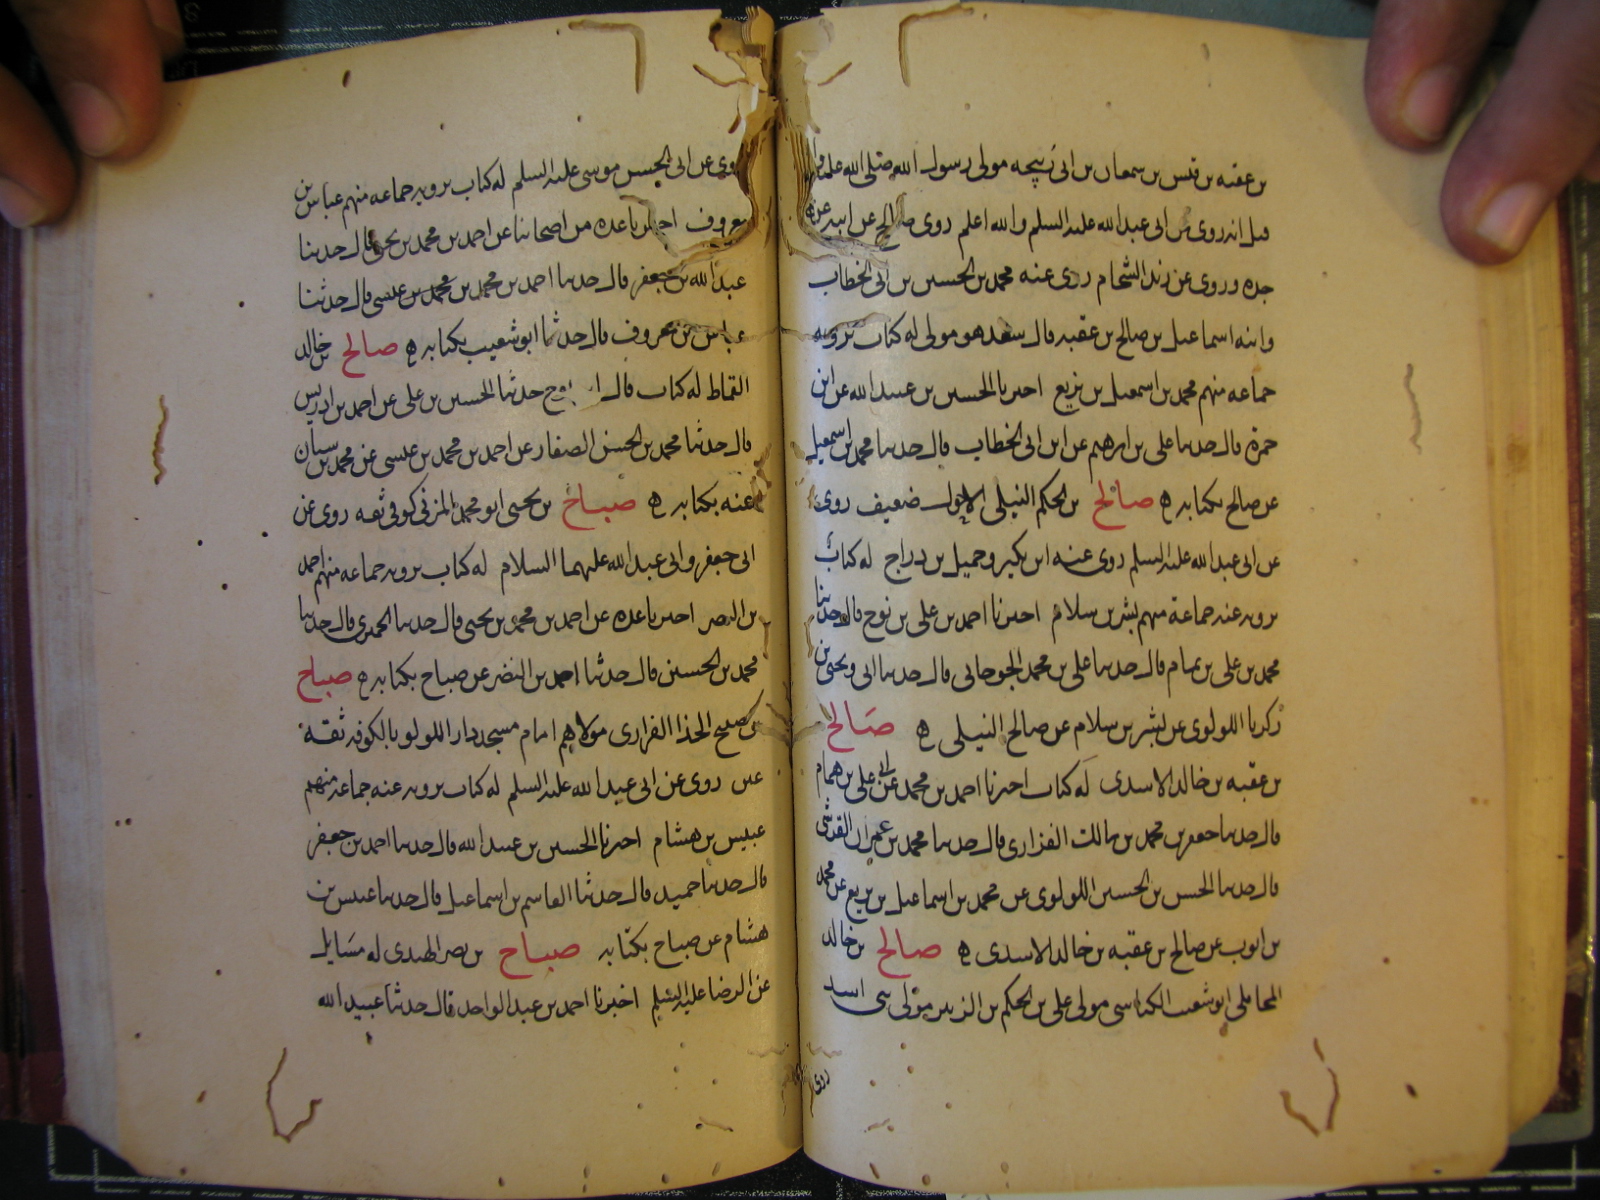 بن عقبه بن قيس بن سمعان بن ابى ربيحه مولى رسول الله صلى الله عليه و
قيل انه روى عن ابى عبد الله عليه السلم والله اعلم روى صالح عن ابيه عن
جده وروى عن زيد الشحام روى عنه محمد بن الحسين بن ابى الخطاب
وابنه اسماعيل بن صالح بن عقبه قال سعد هو مولى له كتاب يرويه
جماعه منهم محمد بن اسمعيل بن بزيع اخبرنا الحسين بن عبيد الله عن ابن
حمزة قال حدثنا على بن ابرهيم عن ابن ابى الخطاب قال حدثنا محمد بن اسمعيل
عن صالح بكتابه ه صالح بن الحكم النيلى الاحول ضعيف روى
عن ابى عبد الله عليه السلم روى عنه ابن بكير وجميل بن دراج له كتاب
يرويه عنه جماعة منهم بشر بن سلام اخبرنا احمد بن على بن نوح قال حدثنا
محمد بن على بن تمام قال حدثنا على بن محمد الجرجانى قال حدثنا ابى ويحيى بن
زكريا اللولوى عن بشر بن سلام عن صالح النيلى ه صالح
بن عقبه بن خالد الاسدى له كتاب اخبرنا احمد بن محمد عن ابى على بن همام
قال حدثنا جعفر بن محمد بن مالك الفزارى قال حدثنا محمد بن عمران القرشى
قال حدثنا الحسن بن الحسين اللولوى عن محمد بن اسماعيل بن بزيع عن محمد
بن ايوب عن صالح بن عقبه بن خالد الاسدى ه صالح بن خالد
المحاملى ابو شعيب الكناسى مولى على بن الحكم بن الزبير مولى بنى اسد
روى
روى عن ابى الحسن موسى عليه السلم له كتاب يرويه جماعه منهم عباس بن
معروف اخبرنا عده من اصحابنا عن احمد بن محمد بن يحيى قال حدثنا
عبد الله بن جعفر قال حدثنا احمد بن محمد بن محمد بن عيسى قال حدثنا
عباس بن معروف قال حدثنا ابو شعيب بكتابه ه صالح بن خالد
القماط له كتاب قال ابن نوح حدثنا الحسين بن على عن احمد بن ادريس
قال حدثنا محمد بن الحسن الصفار عن احمد بن محمد بن عيسى عن محمد بن سنان
عنه بكتابه ه صباح بن يحيى ابو محمد المزنى كوفى ثقه روى عن
ابى جعفر وابى عبد الله عليهما السلام له كتاب يرويه جماعه منهم احمد
بن النضر اخبرنا عده عن احمد بن محمد بن يحيى قال حدثنا الحميرى قال حدثنا
محمد بن الحسين قال حدثنا احمد بن النضر عن صباح بكتابه ه صباح
بن صبيح الحذا الفزارى مولاهم امام مسجد دار اللولو بالكوفه ثقة
عين روى عن ابى عبد الله عليه السلم له كتاب يرويه عنه جماعة منهم
عبيس بن هشام اخبرنا الحسين بن عبيد الله قال حدثنا احمد بن جعفر
قال حدثنا حميد قال حدثنا القاسم بن اسماعيل قال حدثنا عبيس بن
هشام عن صباح بكتابه صباح بن نصر الهندى له مسايل
عن الرضا عليه السلم اخبرنا احمد بن عبد الواحد قال حدثنا عبيد الله